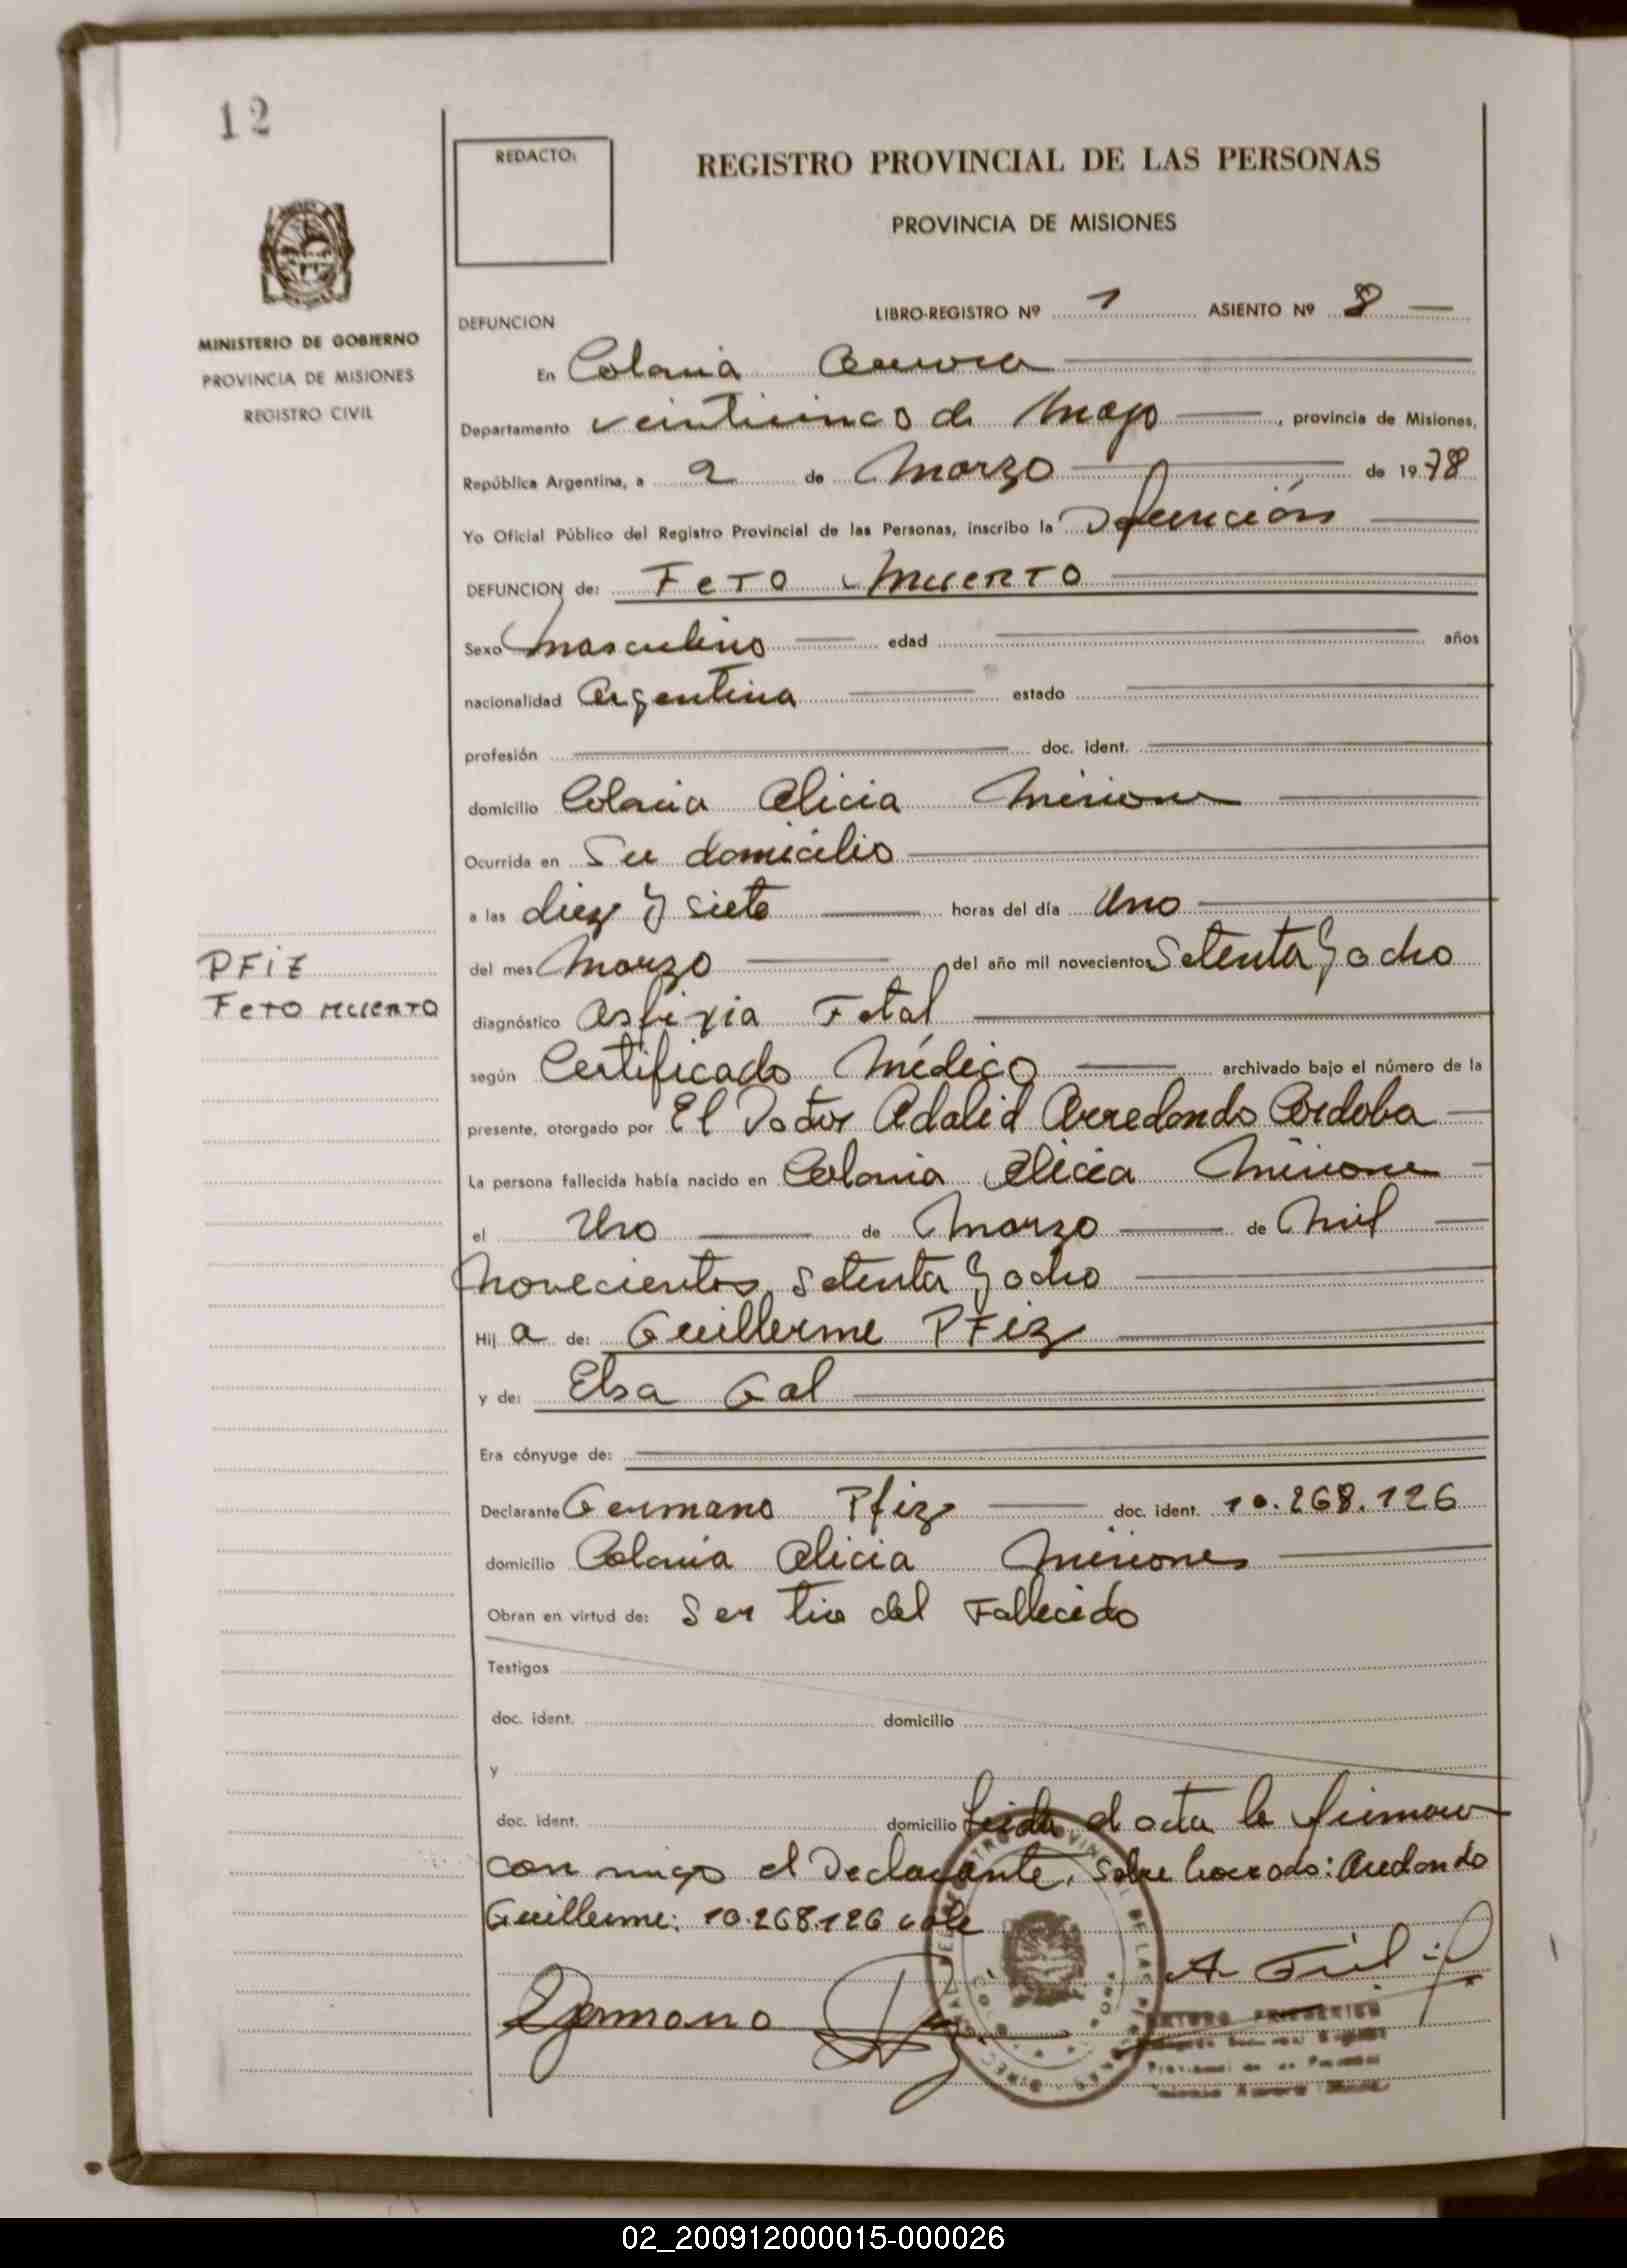 12
REDACTO:
REGISTRO PROVINCIAL DE LAS PERSONAS
PROVINCIA DE MISIONES
MINISTERIO DE GOBIERNO
PROVINCIA DE MISIONES
REGISTRO CIVIL
DEFUNCION
LIBRO-REGISTRO Nº 1 ASIENTO Nº 8
En Colonia Aurora
Departamento veinticinco de Mayo, provincia de Misiones,
República Argentina, a 2 de Marzo de 1978
Yo Oficial Público del Registro Provincial de las Personas, inscribo la Defunción
DEFUNCION de: Feto Muerto
Sexo masculino edad años
nacionalidad Argentina estado
profesión doc. ident.
domicilio Colonia Alicia Misiones
Ocurrida en Su domicilio
a las diez y siete horas del día Uno
PFiz
Feto Muerto
del mes Marzo del año mil novecientos Setenta y ocho
diagnóstico Asfixia Fetal
según Certificado Médico archivado bajo el número de la
presente, otorgado por El Doctor Adalid Arredondo Cordoba
La persona fallecida había nacido en Colonia Alicia Misiones
el Uno de Marzo de Mil
Novecientos Setenta y ocho
Hij a de: Guillerme PFiz
y de: Elsa Gal
Era cónyuge de:
Declarante Germano Pfiz doc. ident. 10.268.126
domicilio Colonia Alicia Misiones
Obran en virtud de: Ser tio del Fallecido
Testigos
doc. ident. domicilio
y
doc. ident. domicilio Leida el acta la firman
con migo el Declarante. Sobre borrado: Aredondo
Guillerme: 10.268.126 vale
Germano
02_200912000015-000026